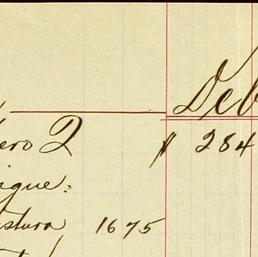 Deb
ero 2 $ 284
igue:
stura 1675